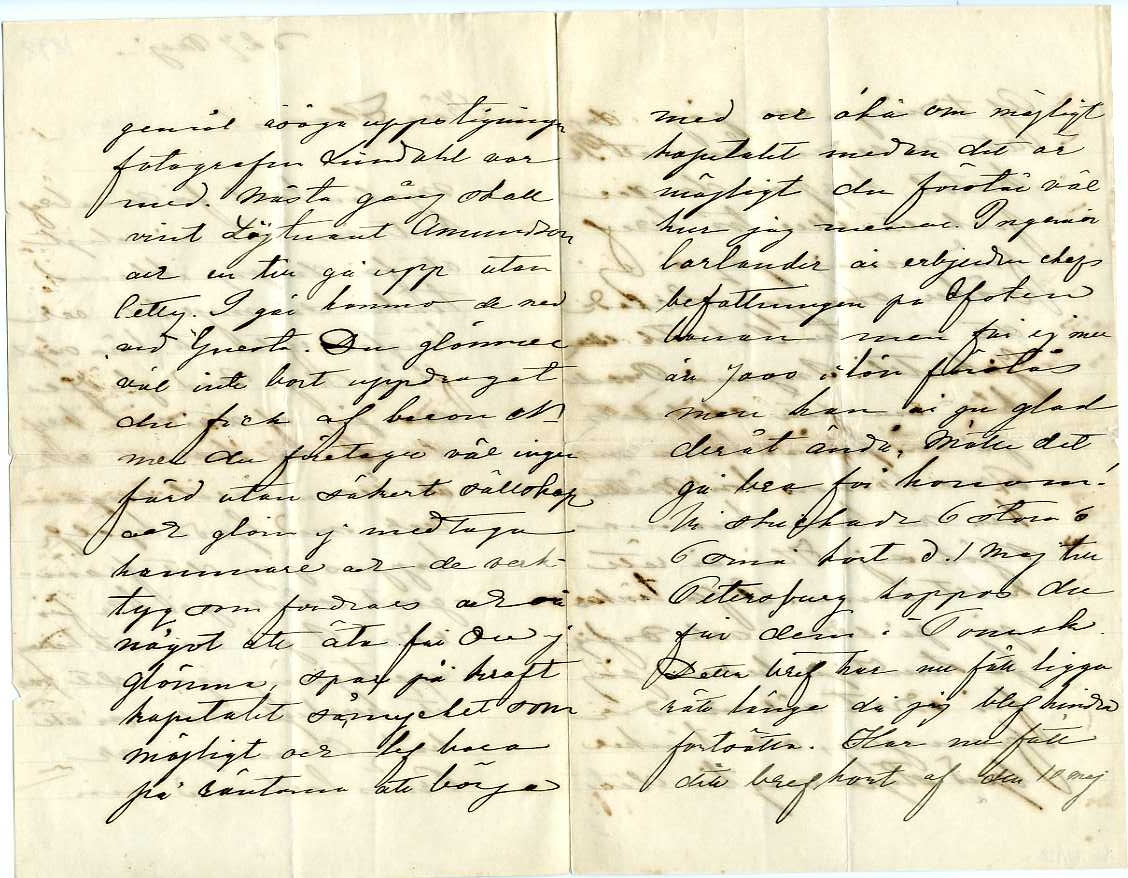 general ööga uppstigninga
fotografen Lundahl var
med. Nästa gång skall
visst Löjtnant Amundson
och en till gå upp utan
Cetty. I går kommo de ned
vid Gnesta. Du glömmer
väl inte bort uppdraget
du fick af baron N
men du företager väl ingen
färd utan säkert sällskap
och glöm ej medtaga
hammare och de verk-
tyg som fordras och så
något att äta får du ej
glömma, spar på kraft
kapitalet såmycket som
möjligt och lef bara
på räntorna att börja
med och öka om möjligt
kapitalet medan det är
möjligt du förstår väl
hur jag menar. Ingeniör
Carlander är erbjuden chefs
befattningen på Ofoten
banan men får ej mer
än 7000 i lön förstås
men han är ju glad
deråt ändå. Måtte det
gå bra för honom!
Vi skickade 6 stora o
6 små kort d. 1 Maj till
Petersburg hoppas du
får dem i Tomsk.
Detta bref har nu fått ligga
rätt länge då jag blef hindra
fortsätta. Har nu fått
ditt brefkort af den 10 maj